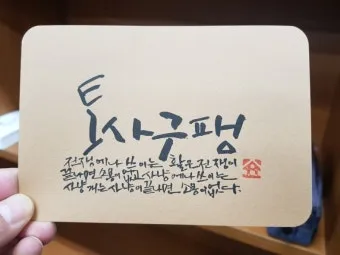 토사구팽
전쟁에나 쓰이는 활은 전쟁이
끝나면 소용이 없고 사냥에나 쓰이는
사냥개는 사냥이 끝나면 소용이 없다.